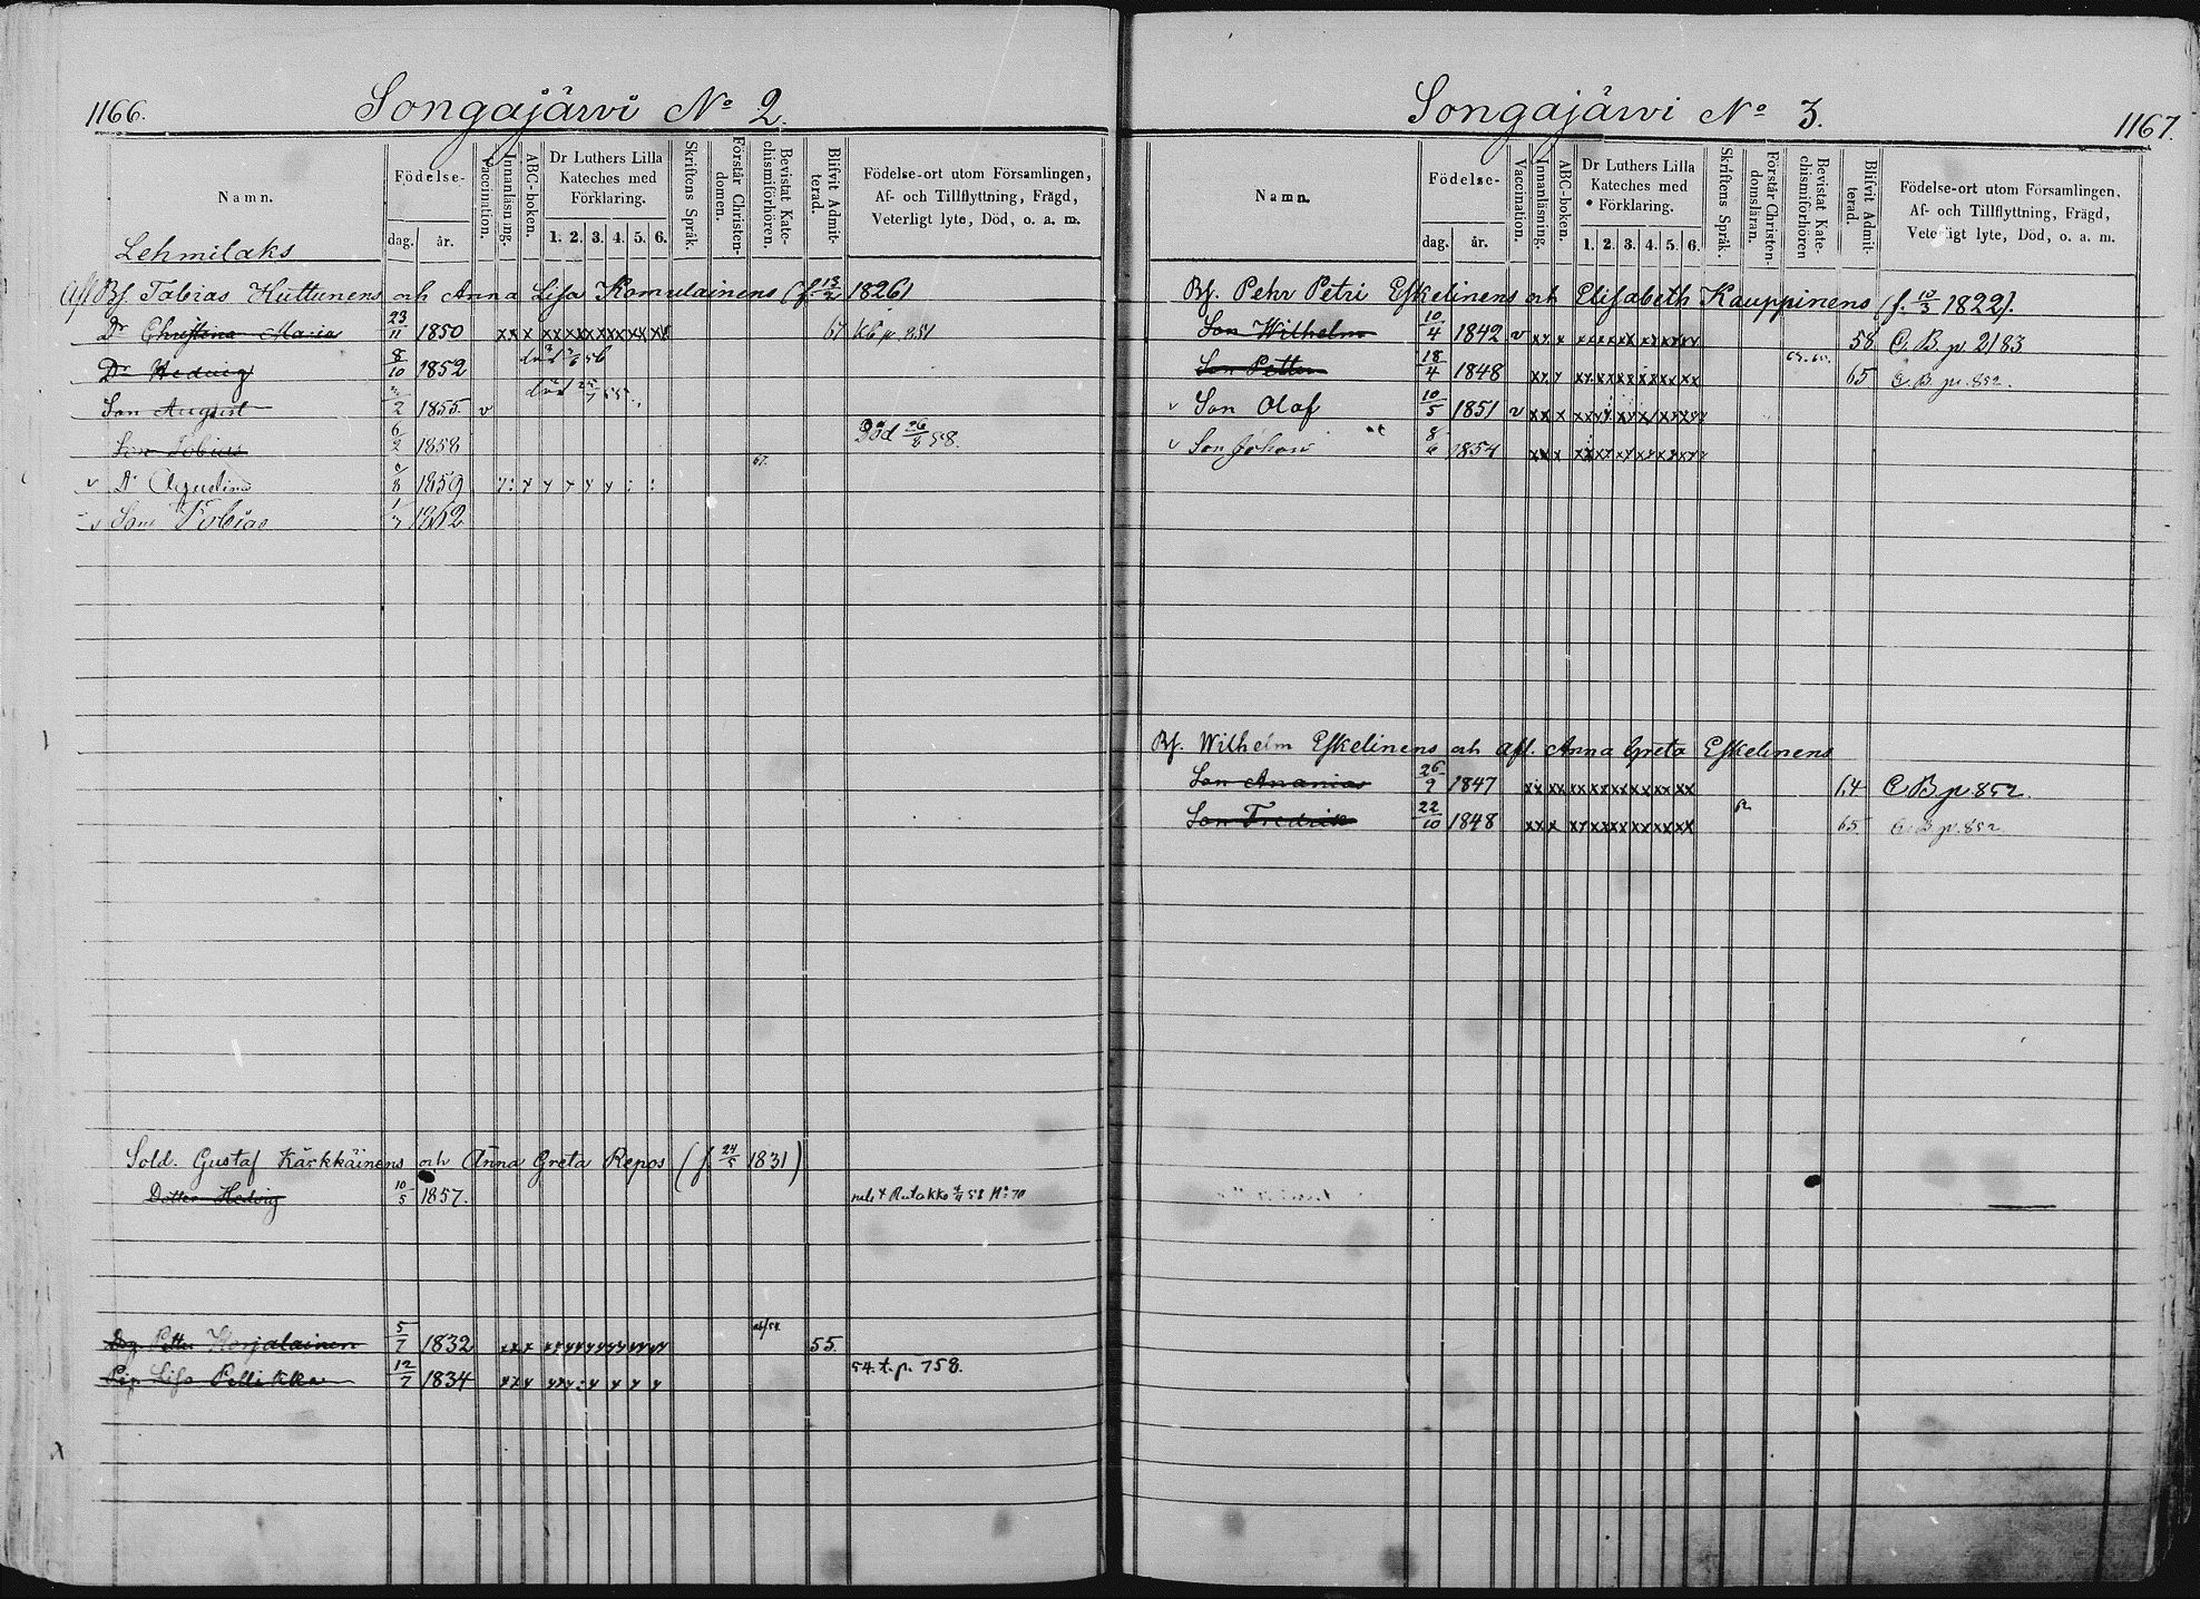 1166.
Songajärvi No 2.
Namn.
Födelse-
dag. år.
Vaccination.
Innanläsning.
ABC-boken.
Dr Luthers Lilla Kateches med Förklaring.
1. 2. 3. 4. 5. 6.
Skriftens Språk.
Förstår Christen-domen.
Bevistat Kate-chismiförhören.
Blifvit Admit-terad.
Födelse-ort utom Församlingen,
Af- och Tillflyttning, Frägd,
Veterligt lyte, Död, o. a. m.
Lehmilaks
Afl Bf. Tobias Huttunens och Anna Lisa Komulainens (f. 13/2 1826)
Dr Christina Maria 23/11 1850 xxx xxxxxxxxxxxx 67
Dr Hedvig 8/10 1852
Son August 1855 v
Son Tobias 6/2 1858 Död 26/8 58.
v Dr 1859 67.
v Son Tobias 1862
Sold. Gustaf Kärkkäinens och Anna Greta Repos (f. 24/5 1831)
Dotter Hedvig 10/5 1857. Rutakko 58 No 70
Petter Korjalainen 5/7 1832 xxx 55.
Pig. Lisa Pellikka 12/7 1834 54. t. p. 758.
1167.
Songajärvi No 3.
Namn.
Födelse-
dag. år.
Vaccination.
Innanläsning.
ABC-boken.
Dr Luthers Lilla Kateches med Förklaring.
1. 2. 3. 4. 5. 6.
Skriftens Språk.
Förstår Christen-domsläran.
Bevistat Kate-chismiförhören
Blifvit Admit-terad.
Födelse-ort utom Församlingen,
Af- och Tillflyttning, Frägd,
Veterligt lyte, Död, o. a. m.
Bf. Pehr Petri Eskelinens och Elisabeth Kauppinens (f. 10/3 1822).
Son Wilhelm 10/4 1842 v xxx xxxxxxxxxxxx 58 C. B. p. 2183
Son Petter 18/4 1848 xxx xxxxxxxxxxxx 65 C. B. p. 852.
v Son Olof 10/5 1851 v xxx xxxxxxxxxxxx
v Son Johan 8/6 1854 xxx xxxxxxxxxxxx
Bf. Wilhelm Eskelinens och afl. Anna Greta Eskelinens
Son Ananias 26/9 1847 xxxx xxxxxxxxxxxx 64 C B p. 852.
Son Fredrik 22/10 1848 xxx xxxxxxxxxxxx 65 C. B p. 852